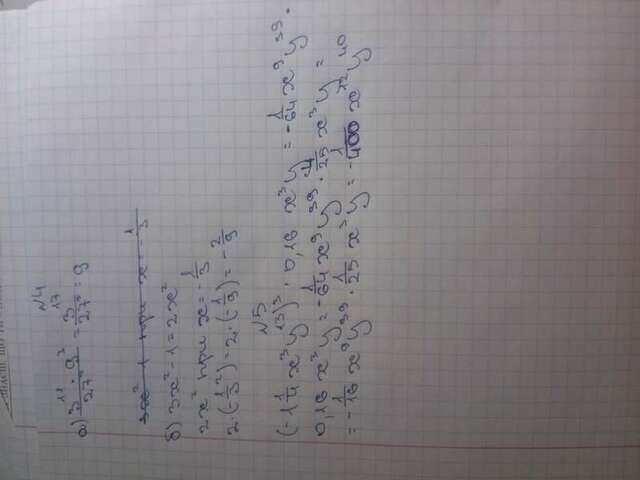 №4
а) 3¹¹ · 9² / 27³ = 3¹⁷ / 27³ = 9
3x² - 1 при x = - 1/3
б) 3x² - 1 = 2x²
2x² при x = - 1/3
2 · (- 1/3²) = 2 · (- 1/9) = - 2/9
№5
(-1 1/4 x³y¹³)³ · 0,16 x³y = - 1/64 x⁹y³⁹ ·
0,16 x³y = - 1/64 x⁹y³⁹ · 4/25 x³y =
= - 1/16 x⁹y³⁹ · 1/25 x³y = - 1/400 x¹²y⁴⁰